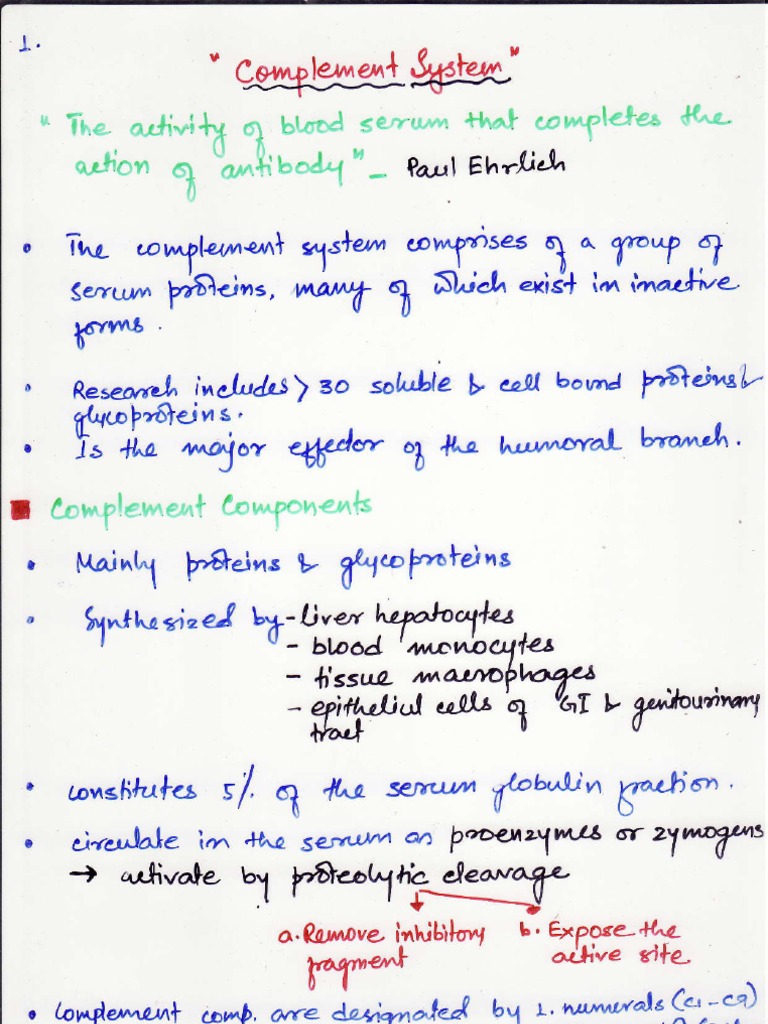 1.
" Complement System "
" The activity of blood serum that completes the
action of antibody" - Paul Ehrlich
• The complement system comprises of a group of
serum proteins, many of which exist in inactive
forms.
• Research includes > 30 soluble & cell bound proteins &
glycoproteins.
• Is the major effector of the humoral branch.
■ Complement Components
• Mainly proteins & glycoproteins
• Synthesized by - liver hepatocytes
- blood monocytes
- tissue macrophages
- epithelial cells of GI & genitourinary
tract
• constitutes 5% of the serum globulin fraction.
• circulate in the serum as proenzymes or zymogens
→ activate by proteolytic cleavage
a. Remove inhibitory
fragment
b. Expose the
active site
• Complement comp. are designated by 1. numerals (C1-C9)